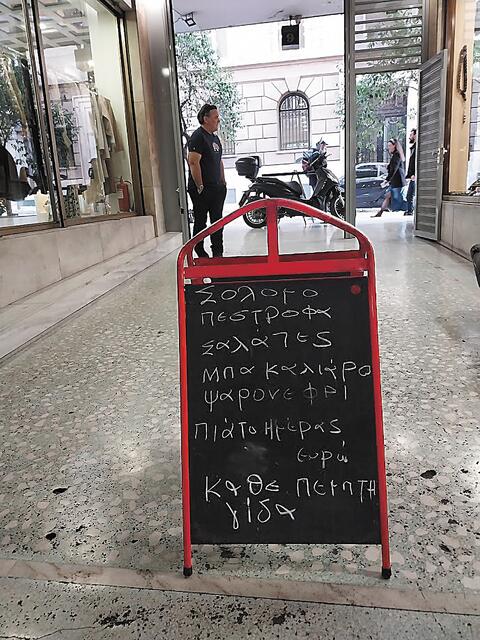 ΣΟλΟμΟ
ΠΕΣΤΡΟΦα
ΣαλάΤΕS
ΜΠα ΚαλΙάΡΟ
ΨαΡΟΝΕΦΡΙ
ΠΙάΤΟ ΗμΕΡαS
Ευρώ
ΚαΘΕ ΠΕμΠΤΗ
γίδα